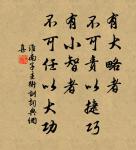 有大略者
不可責以捷巧
有小智者
不可任以大功
淮南子主術訓詞典網
真